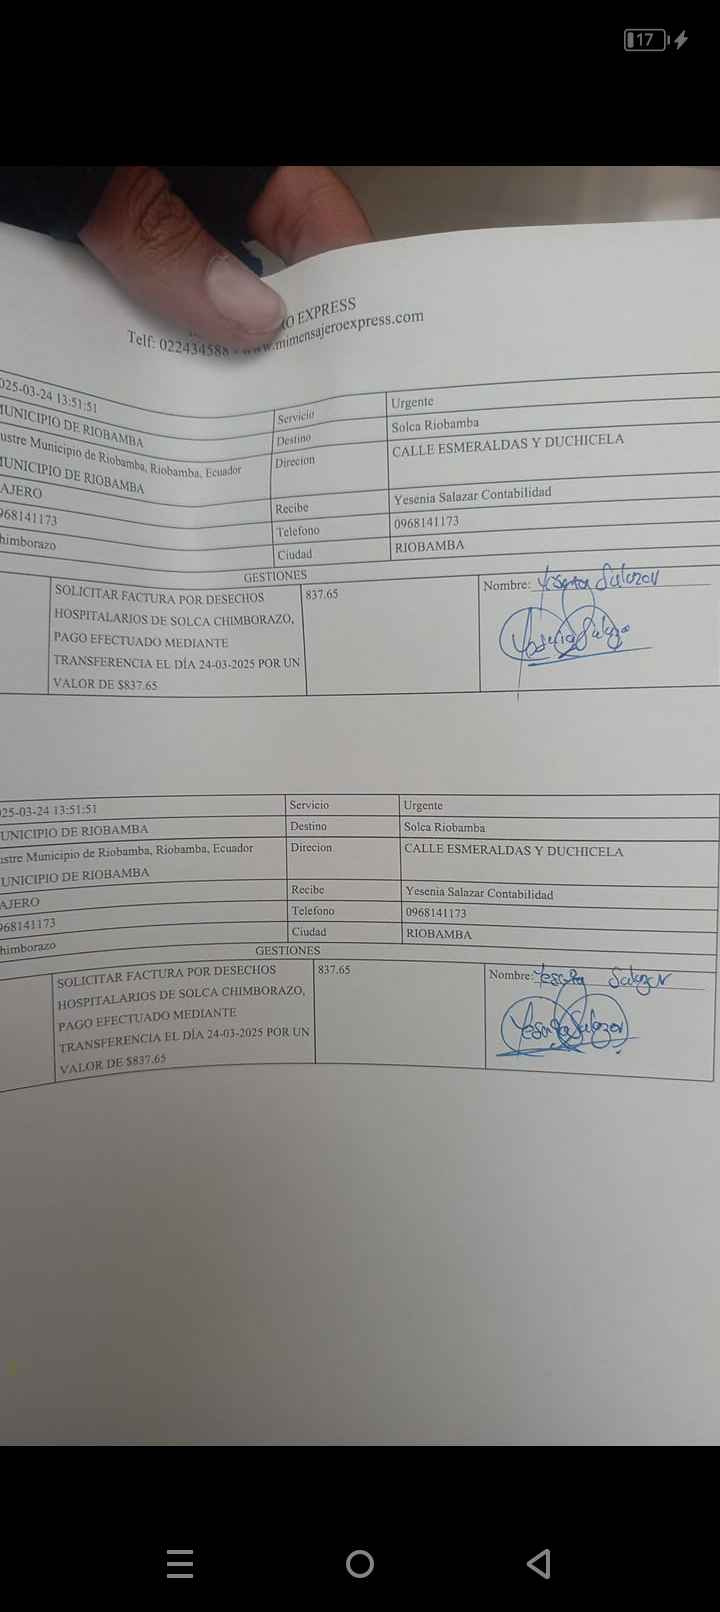 17
O EXPRESS
Telf: 022434588 - www.mimensajeroexpress.com
025-03-24 13:51:51
Servicio
Urgente
UNICIPIO DE RIOBAMBA
Destino
Solca Riobamba
ustre Municipio de Riobamba, Riobamba, Ecuador
Direcion
CALLE ESMERALDAS Y DUCHICELA
UNICIPIO DE RIOBAMBA
AJERO
Recibe
Yesenia Salazar Contabilidad
968141173
Telefono
0968141173
himborazo
Ciudad
RIOBAMBA
GESTIONES
SOLICITAR FACTURA POR DESECHOS
HOSPITALARIOS DE SOLCA CHIMBORAZO,
PAGO EFECTUADO MEDIANTE
TRANSFERENCIA EL DÍA 24-03-2025 POR UN
VALOR DE $837.65
837.65
Nombre: Yesenia Salazar
Yesenia Salazar
025-03-24 13:51:51
Servicio
Urgente
UNICIPIO DE RIOBAMBA
Destino
Solca Riobamba
ustre Municipio de Riobamba, Riobamba, Ecuador
Direcion
CALLE ESMERALDAS Y DUCHICELA
UNICIPIO DE RIOBAMBA
AJERO
Recibe
Yesenia Salazar Contabilidad
968141173
Telefono
0968141173
himborazo
Ciudad
RIOBAMBA
GESTIONES
SOLICITAR FACTURA POR DESECHOS
HOSPITALARIOS DE SOLCA CHIMBORAZO,
PAGO EFECTUADO MEDIANTE
TRANSFERENCIA EL DÍA 24-03-2025 POR UN
VALOR DE $837.65
837.65
Nombre: Yesenia Salazar
Yesenia Salazar